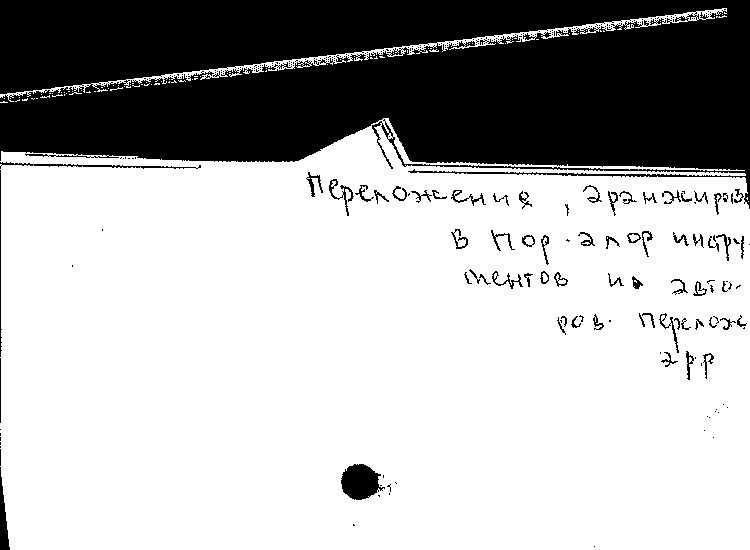 Переложение, аранжиров
в пор. алф инстру-
ментов и авто-
ров. перелож
арр